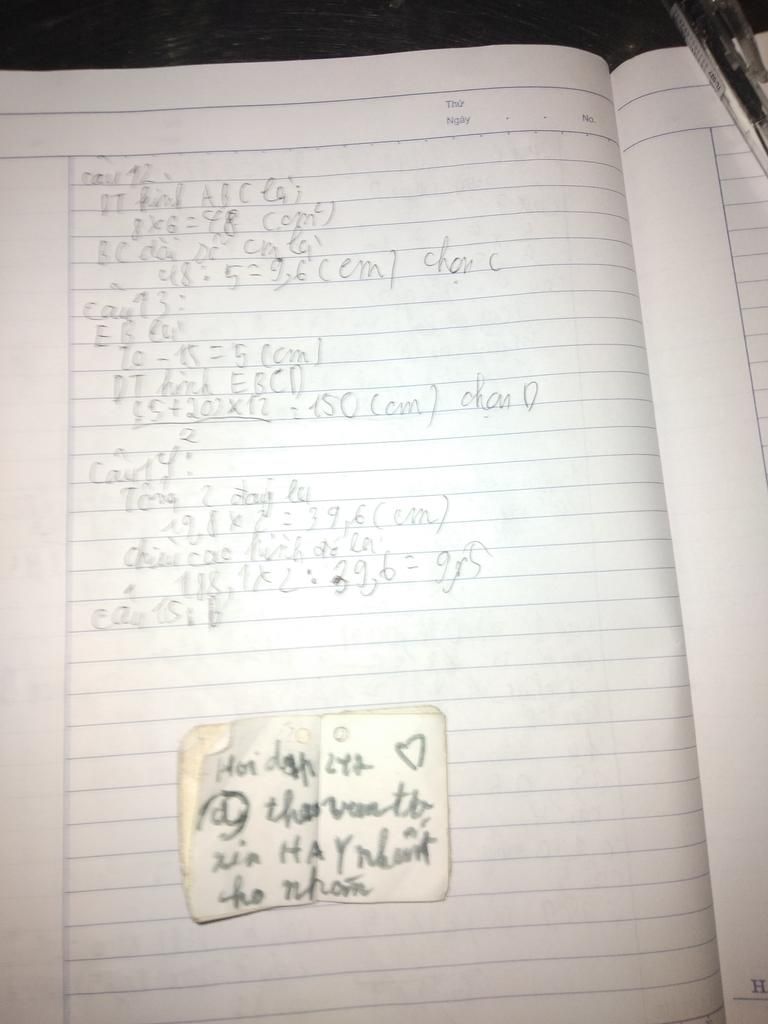 Thứ
Ngày . . No.
câu 12:
DT hình ABC là:
8x6=48 (cm²)
BC dài số cm là
48:5=9,6(cm) chọn C
câu 13:
EB là:
20-15=5 (cm)
DT hình EBCD
(5+20)x12 =150(cm) chọn D
2
câu 14:
Tổng 2 đáy là
19,8x2=39,6(cm)
chiều cao hình đó là
188,1x2:39,6=9,5
câu 15:
Hỏi đáp 247
xin HAY nhất
cho nhóm
H